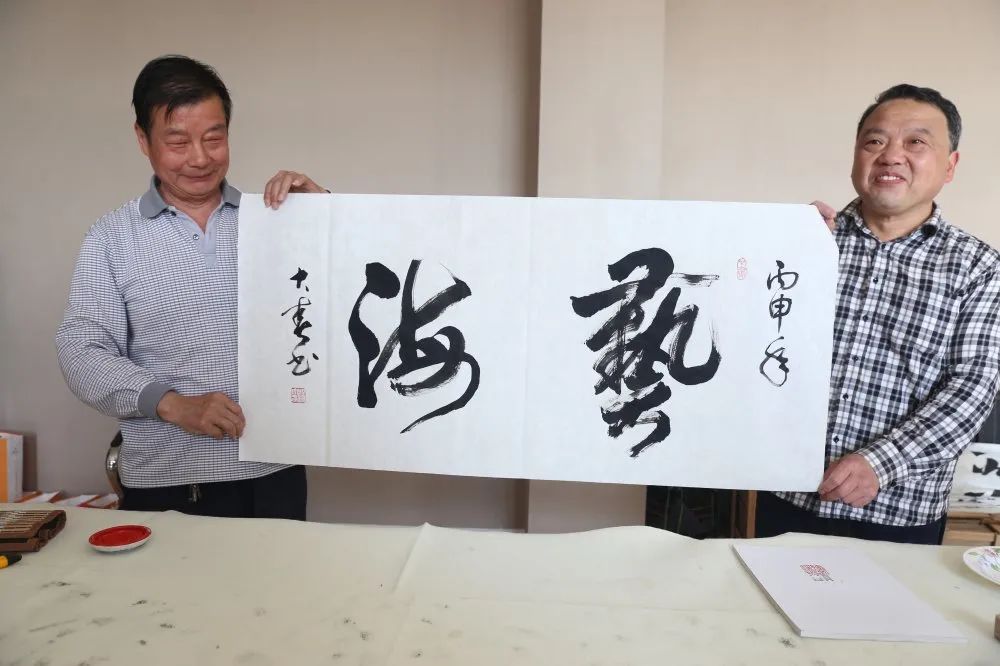 丙申年
藝海
大春书